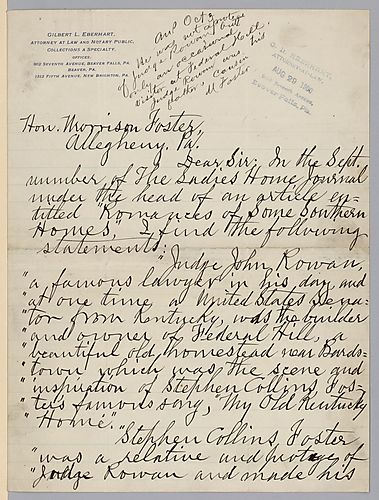 GILBERT L. EBERHART,
ATTORNEY AT LAW AND NOTARY PUBLIC,
COLLECTIONS A SPECIALTY,
OFFICES:
BEAVER, PA.
FIFTH AVENUE, NEW BRIGHTON, PA.
and Oct 2
He was not a protege
of Judge Rowan but
only an occasional
visitor at Federal Hill.
Judge Rowan was his
father's cousin
M Foster
G. L. EBERHART,
ATTORNEY AT LAW,
AUG 29 1900
Beaver Falls, Pa.
Hon. Morrison Foster,
Allegheny, Pa.
Dear Sir: In the Sept.
number of The Ladies Home Journal
under the head of an article en-
titled "Romances of Some Southern
Homes," I find the following
statements:
"Judge John Rowan,
"a famous lawyer in his day, and
"at one time a United States Sena-
"tor from Kentucky, was the builder
"and owner of Federal Hill, a
"beautiful old homestead near Bards-
"town which was the scene and
"inspiration of Stephen Collins Fos-
"ter's famous song, "My Old Kentucky
"Home."
"Stephen Collins Foster
"was a relative and protege of
"Judge Rowan and made his